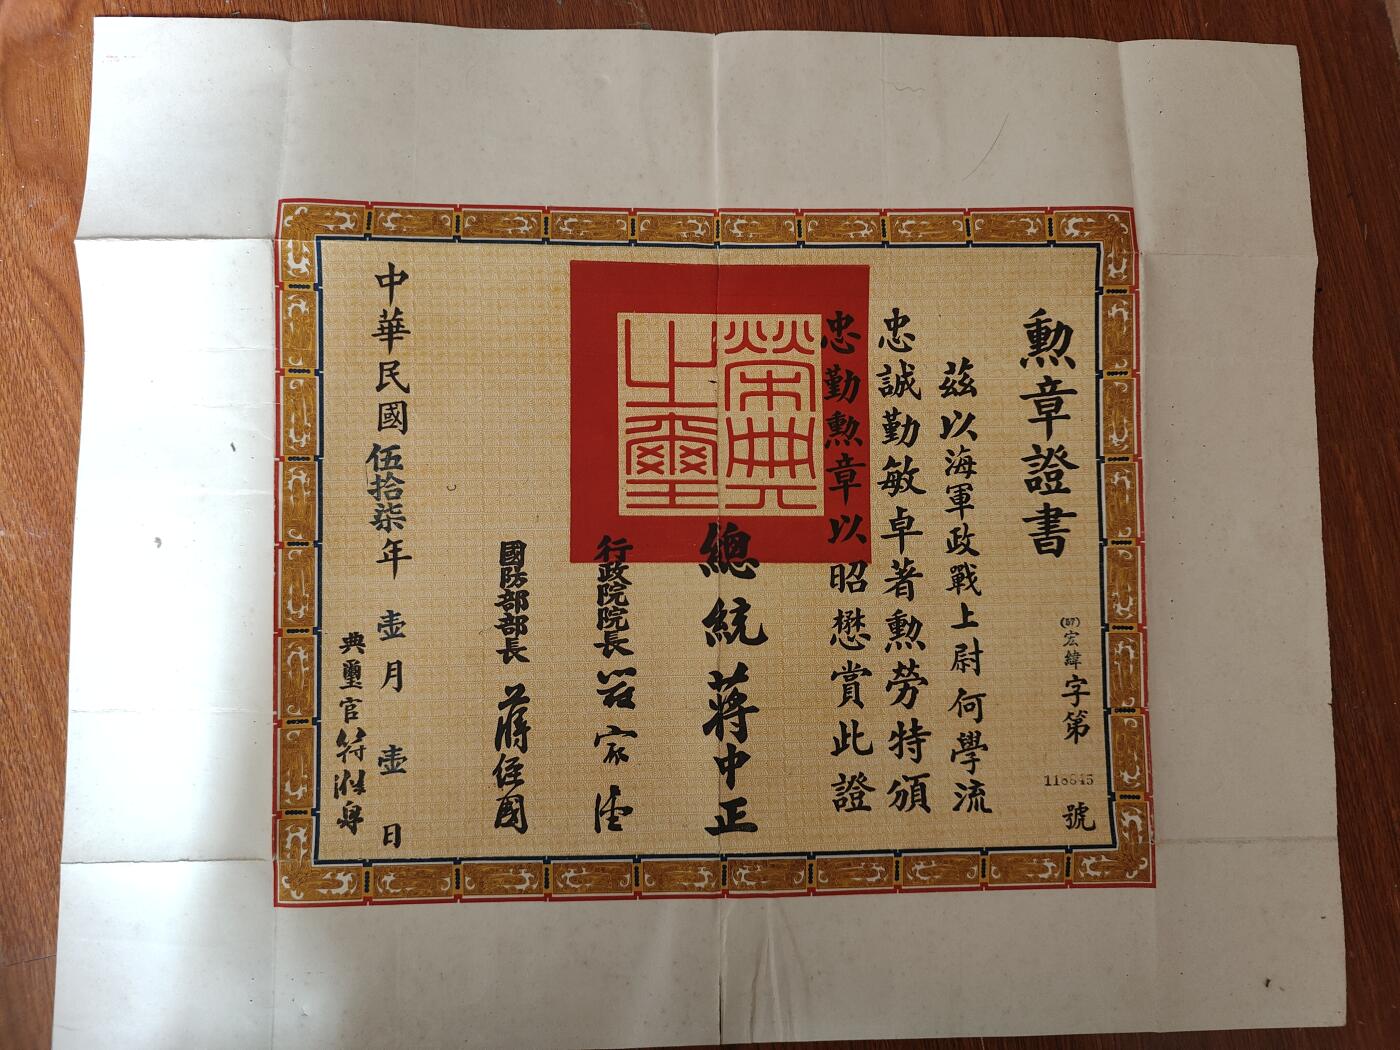 勳章證書
(57)宏緯字第 號
茲以海軍政戰上尉何學流
忠誠勤敏卓著勳勞特頒
忠勤勳章以昭懋賞此證
榮典之璽
總統 蔣中正
行政院院長 嚴家淦
國防部部長 蔣經國
中華民國伍拾柒年壹月壹日
典璽官 符滌泉